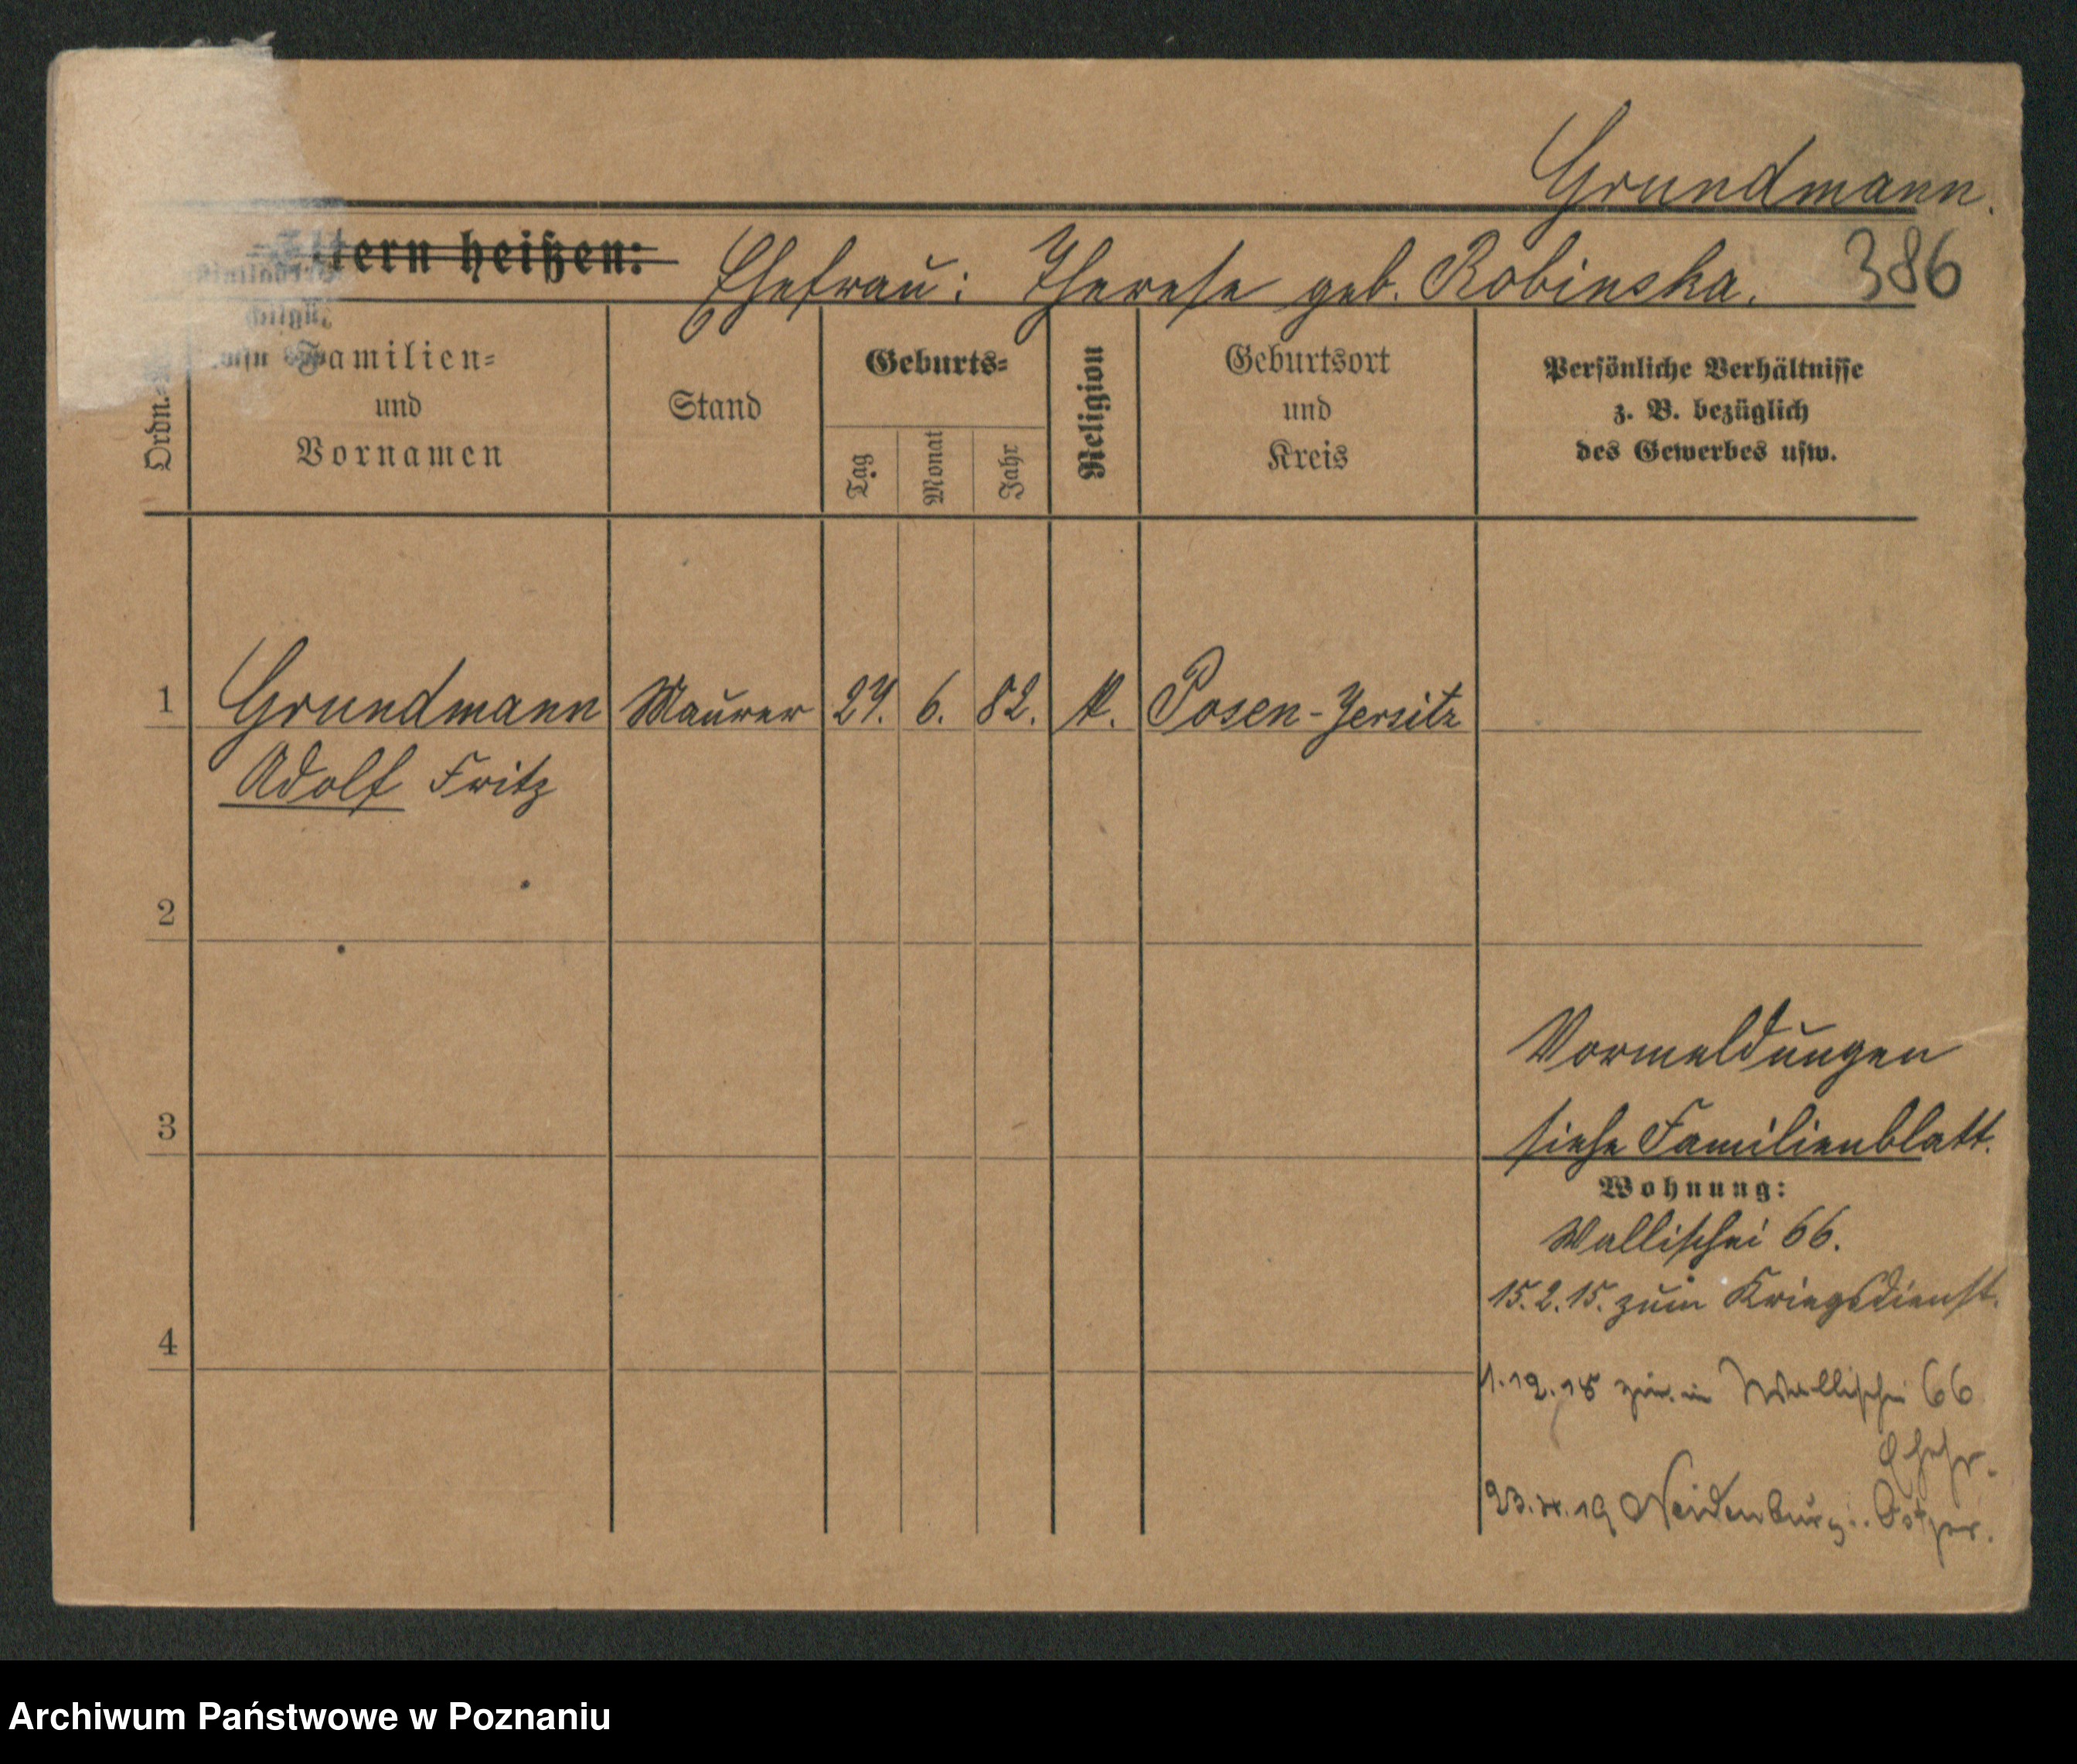 Grundmann.
Eltern heißen: Ehefrau: Therese geb. Robinska. 386
Ordn.
Familien=
und
Vornamen
Stand
Geburts=
Tag
Monat
Jahr
Religion
Geburtsort
und
Kreis
Persönliche Verhältnisse
z. B. bezüglich
des Gewerbes usw.
1 Grundmann Maurer 24. 6. 82. k. Posen-Jersitz
Adolf Fritz
2
Vormeldungen
3 siehe Familienblatt.
Wohnung:
Wallischei 66.
15.2.15. zum Kriegsdienst.
4
1.12.18 zur. in Wallischei 66
Ehefr.
Neidenburg i. Ostpr.
Archiwum Państwowe w Poznaniu